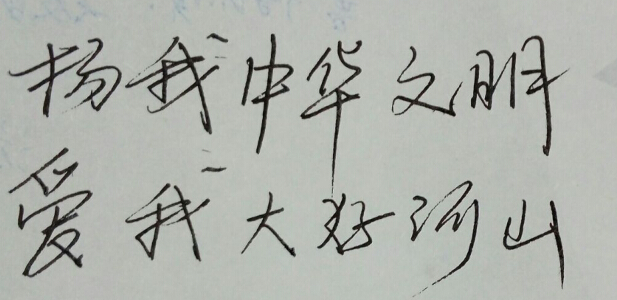 扬我中华文明
爱我大好河山